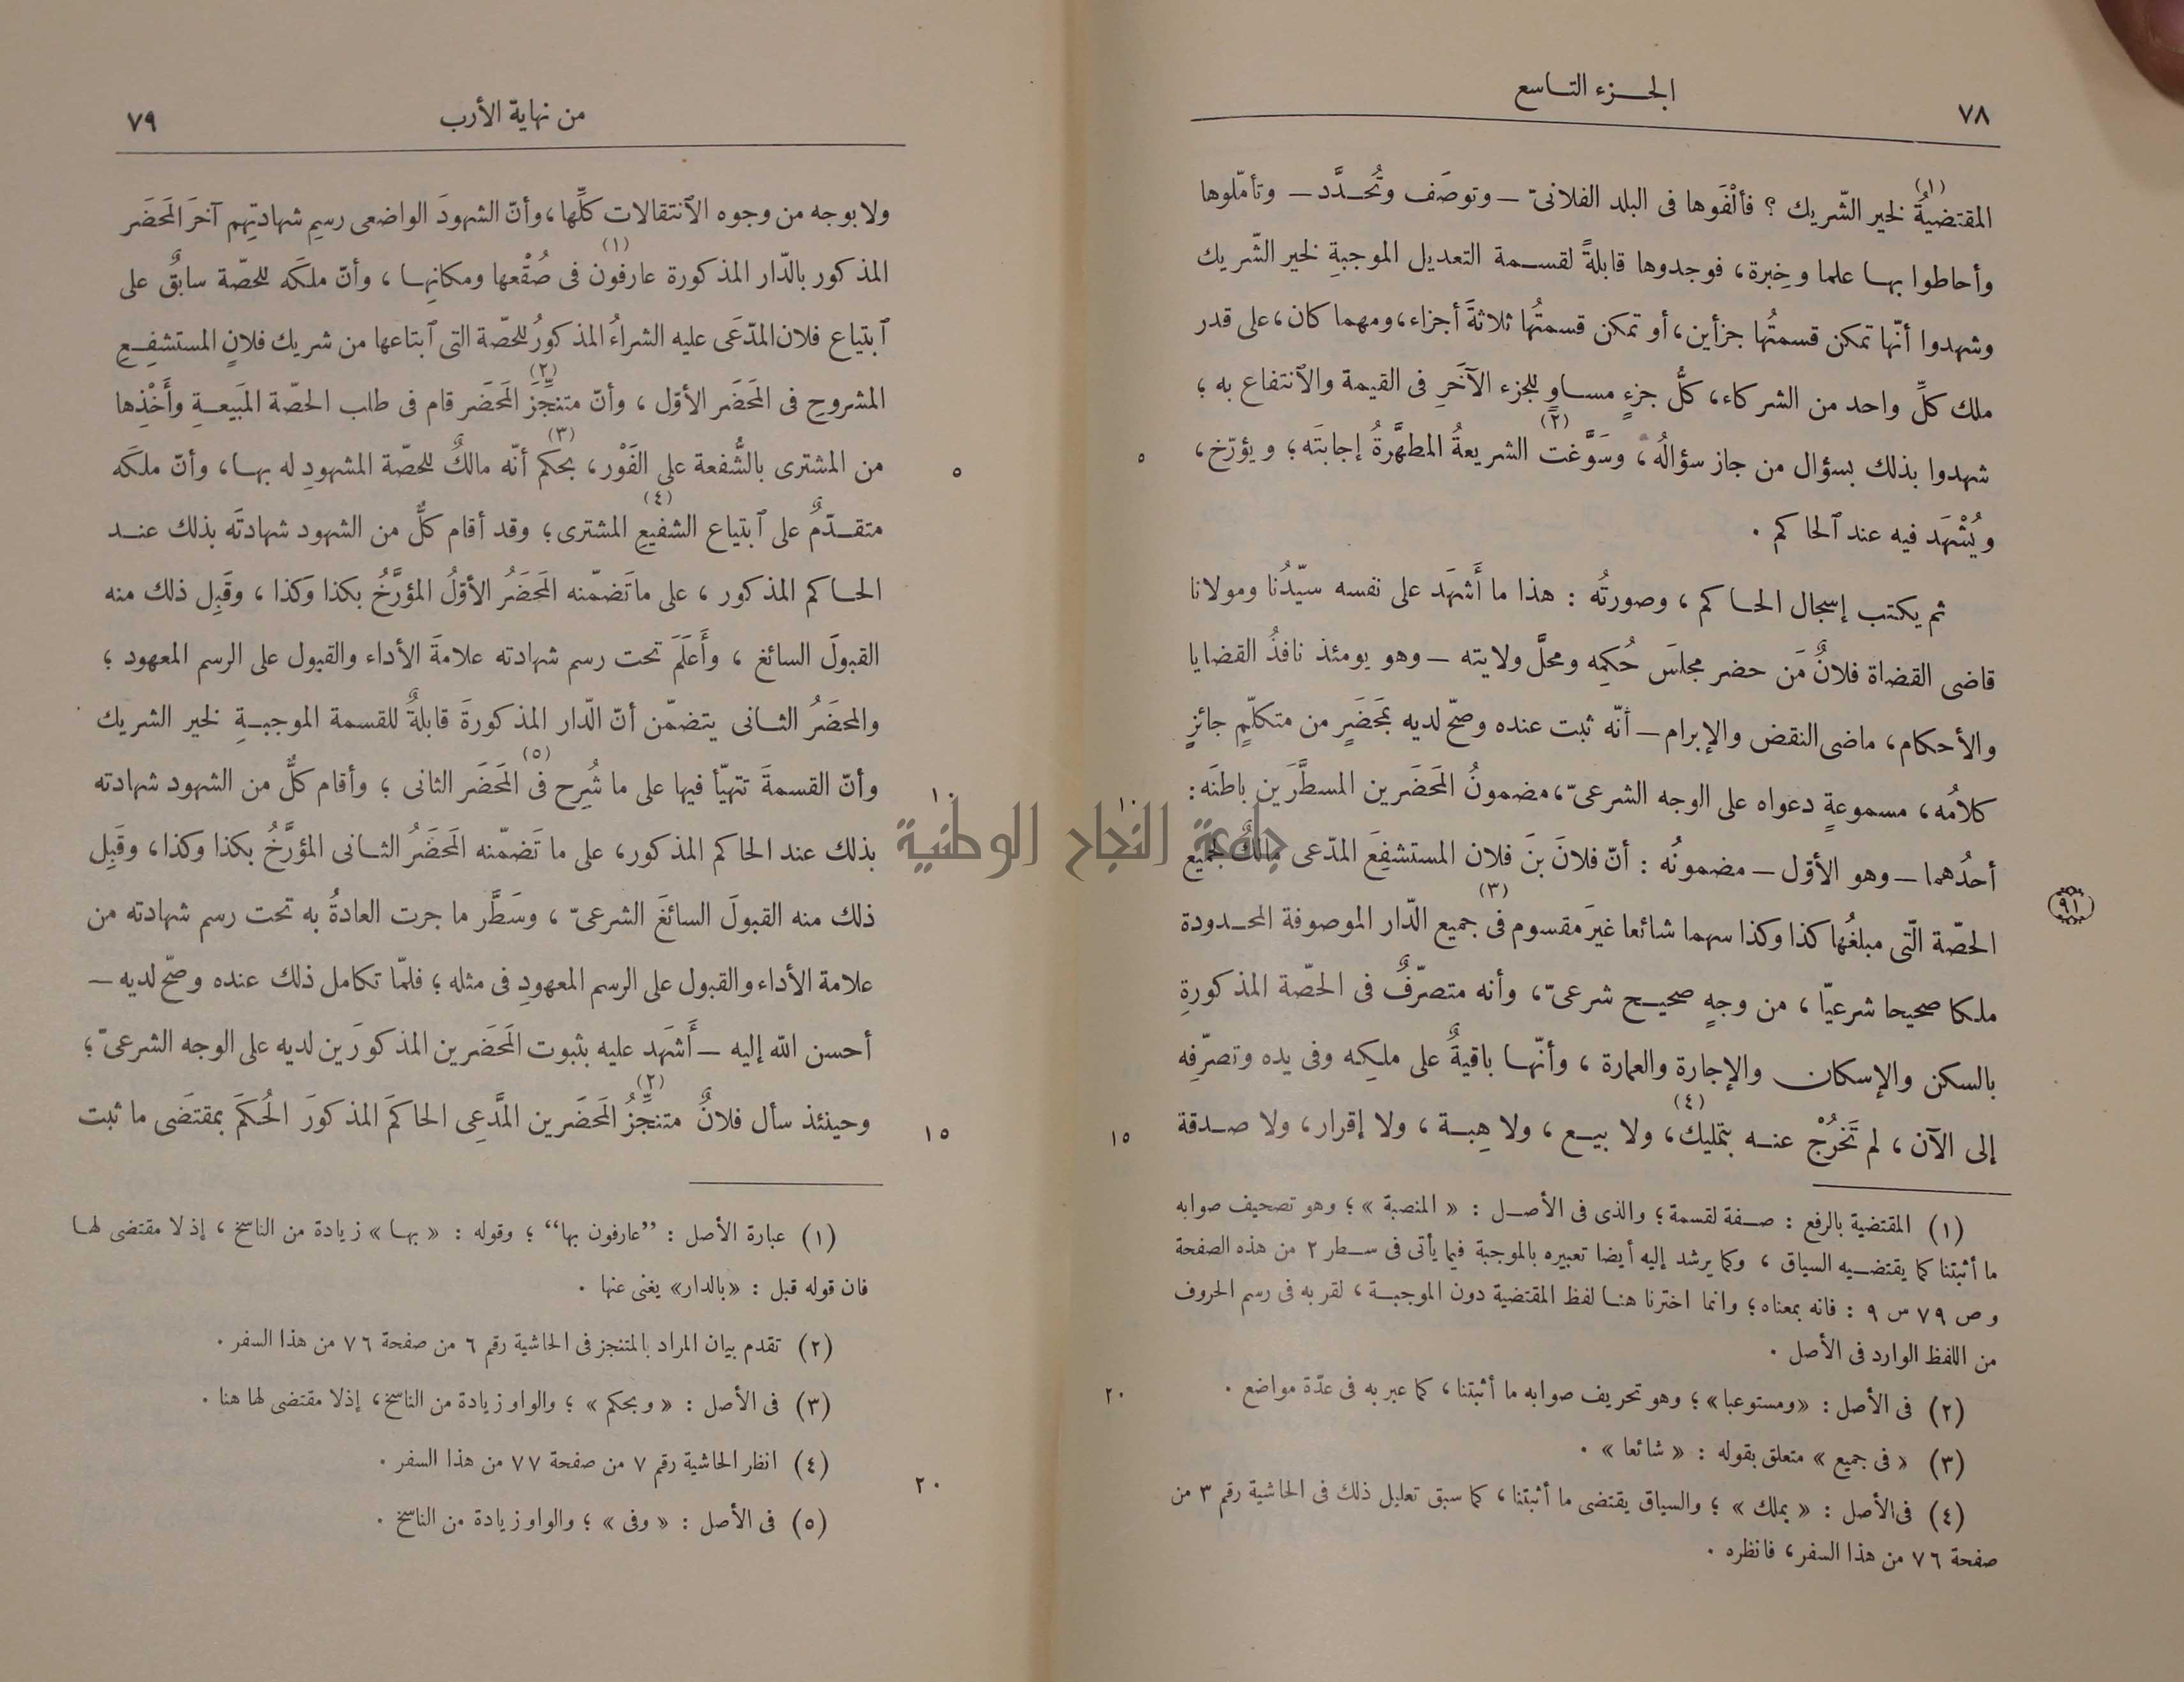 ٧٨
الجزء التاسع
المقتضيةُ (١) لخير الشّريك ؟ فألْفَوها فى البلد الفلانىّ — وتوصَف وتُحدَّد — وتأمّلوها
وأحاطوا بها علما وخِبرة، فوجدوها قابلةً لقسمة التعديل الموجبةِ لخير الشّريك
وشهدوا أنّها تمكن قسمتُها جزأين، أو تمكن قسمتُها ثلاثةَ أجزاء، ومهما كان، على قدر
ملك كلِّ واحد من الشركاء، كلُّ جزءٍ مساوٍ للجزء الآخَرِ فى القيمة والٱنتفاع به ؛
شهدوا بذلك بسؤال من جاز سؤالُه، وسَوَّغت (٢) الشريعةُ المطهَّرةُ إجابتَه؛ ويؤرّخ،
ويُشْهَد فيه عند ٱلحاكم .
ثم يكتب إسجال الحاكم ، وصورتُه : هذا ما أَشهَد على نفسه سيّدُنا ومولانا
قاضى القضاة فلانٌ مَن حضر مجلسَ حُكمِه ومحلَّ ولايته — وهو يومئذ نافذُ القضايا
والأحكام، ماضى النقض والإبرام — أنّه ثبت عنده وصحّ لديه بمَحضَرٍ من متكلّمٍ جائزٍ
كلامُه، مسموعةٍ دعواه على الوجه الشرعىّ، مضمونُ المَحضَرين المسطَّرَين باطنَه:
أحدُهما — وهو الأوّل — مضمونُه : أنّ فلانَ بنَ فلان المستشفِعَ المدّعى مالكٌ لجميع
الحصّة الّتى مبلغُها كذا وكذا سهما شائعا غيرَ مقسوم فى (٣) جميع الدّار الموصوفة المحدودة
ملكا صحيحا شرعيّا ، من وجهٍ صحيح شرعىّ، وأنه متصرّفٌ فى الحصّة المذكورةِ
بالسكن والإسكان والإجارة والعمارة ، وأنّها باقيةٌ على ملكِه وفى يده وتصرّفِه
إلى الآن ، لم تَخرُجْ عنه بتمليك (٤)، ولا بيع ، ولا هِبة ، ولا إقرار، ولا صدقة
٥
١٠
١٥
٢٠
٩١
(١) المقتضية بالرفع : صفة لقسمة؛ والذى فى الأصل : « المنصبة » ؛ وهو تصحيف صوابه
ما أثبتنا كما يقتضيه السياق ، وكما يرشد إليه أيضا تعبيره بالموجبة فيما يأتى فى سطر ٢ من هذه الصفحة
وص ٧٩ س ٩ : فانه بمعناه؛ وانما اخترنا هنا لفظ المقتضية دون الموجبة، لقربه فى رسم الحروف
من اللفظ الوارد فى الأصل .
(٢) فى الأصل : «ومستوعبا» ؛ وهو تحريف صوابه ما أثبتنا، كما عبر به فى عدّة مواضع .
(٣) « فى جميع » متعلق بقوله : « شائعا » .
(٤) فى الأصل : « بملك » ؛ والسياق يقتضى ما أثبتنا، كما سبق تعليل ذلك فى الحاشية رقم ٣ من
صفحة ٧٦ من هذا السفر، فانظره .
جامعة النجاح الوطنية
من نهاية الأرب
٧٩
ولا بوجه من وجوه الٱنتقالات كلِّها، وأنّ الشهودَ الواضعى رسمِ شهادتِهم آخرَ المَحضَر
المذكور بالدّار المذكورة عارفون (١) فى صُقْعها ومكانِها ، وأنّ ملكَه للحصّة سابقٌ على
ٱبتياع فلان المدّعَى عليه الشراءُ المذكورُ للحصّة التى ٱبتاعها من شريك فلانٍ المستشفِعِ
المشروحِ فى المَحضَر الأوّل ، وأنّ متنجِّزَ (٢) المَحضَر قام فى طلب الحصّة المَبيعةِ وأَخْذِها
من المشترى بالشُّفعة على الفَوْر، بحكم (٣) أنّه مالكٌ للحصّة المشهودِ له بها، وأنّ ملكَه
متقدّمٌ على ٱبتياع الشفيعِ (٤) المشترى؛ وقد أقام كلٌّ من الشهود شهادتَه بذلك عند
الحاكم المذكور ، على ما تَضمّنه المَحضَرُ الأوّلُ المؤرَّخُ بكذا وكذا ، وقَبِل ذلك منه
القبولَ السائغ ، وأَعلَمَ تحت رسم شهادته علامةَ الأداء والقبول على الرسم المعهود ؛
والمحضَرُ الثانى يتضمّن أنّ الدّار المذكورةَ قابلةٌ للقسمة الموجبةِ لخير الشريك
وأنّ القسمةَ تتهيّأ فيها على ما شُرِح فى (٥) المَحضَر الثانى ؛ وأقام كلٌّ من الشهود شهادته
بذلك عند الحاكم المذكور، على ما تَضمّنه المَحضَرُ الثانى المؤرَّخُ بكذا وكذا، وقَبِل
ذلك منه القبولَ السائغَ الشرعىّ ، وسَطَّر ما جرت العادةُ به تحت رسم شهادته من
علامة الأداء والقبول على الرسم المعهودِ فى مثله ؛ فلمّا تكامل ذلك عنده وصحّ لديه —
أحسن الله إليه — أَشهَد عليه بثبوت المَحضَرين المذكورَين لديه على الوجه الشرعىّ؛
وحينئذ سأل فلانٌ متنجِّزُ (٢) المَحضَرين المدَّعِى الحاكمَ المذكورَ الحُكمَ بمقتضَى ما ثبت
٥
١٠
١٥
٢٠
(١) عبارة الأصل : “عارفون بها” ؛ وقوله : « بها » زيادة من الناسخ ، إذ لا مقتضى لها
فان قوله قبل : «بالدار» يغنى عنها .
(٢) تقدم بيان المراد بالمتنجز فى الحاشية رقم ٦ من صفحة ٧٦ من هذا السفر .
(٣) فى الأصل : « وبحكم » ؛ والواو زيادة من الناسخ، إذ لا مقتضى لها هنا .
(٤) انظر الحاشية رقم ٧ من صفحة ٧٧ من هذا السفر .
(٥) فى الأصل : « وفى » ؛ والواو زيادة من الناسخ .